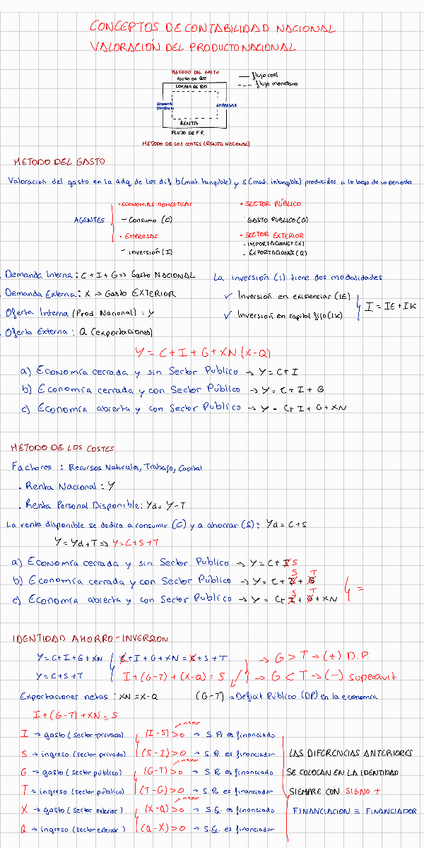 CONCEPTOS DE CONTABILIDAD NACIONAL
VALORACIÓN DEL PRODUCTO NACIONAL
MÉTODO DEL GASTO
flujo real
flujo monetario
EMPRESAS
RENTA
FLUJO DE P.R.
MÉTODO DE LOS COSTES (RENTA NACIONAL)
MÉTODO DEL GASTO
Valoración del gasto en la adq. de los dif. b(mat. tangible) y s(mat. intangible) producidos a lo largo de un periodo
AGENTES
• ECONOMÍAS DOMÉSTICAS
– Consumo (C)
• EMPRESAS
– Inversión (I)
• SECTOR PÚBLICO
GASTO PÚBLICO (G)
• SECTOR EXTERIOR
• IMPORTACIONES (X)
• EXPORTACIONES (Q)
Demanda Interna: C + I + G → Gasto NACIONAL
Demanda Externa: X → Gasto EXTERIOR
Oferta Interna (Prod Nacional): Y
Oferta Externa: Q (exportaciones)
La inversión (I) tiene dos modalidades
✓ Inversión en existencias (IE)
✓ Inversión en capital fijo (IK)
I = IE + IK
Y = C + I + G + XN (X-Q)
a) Economía cerrada y sin Sector Público → Y = C + I
b) Economía cerrada y con Sector Público → Y = C + I + G
c) Economía abierta y con Sector Público → Y = C + I + G + XN
MÉTODO DE LOS COSTES
Factores: Recursos Naturales, Trabajo, Capital
• Renta Nacional: Y
• Renta Personal Disponible: Yd = Y - T
La renta disponible se dedica a consumir (C) y a ahorrar (S): Yd = C + S
Y = Yd + T → Y = C + S + T
a) Economía cerrada y sin Sector Público → Y = C + I S
b) Economía cerrada y con Sector Público → Y = C + I S + G T
c) Economía abierta y con Sector Público → Y = C + I S + G T + XN
=
IDENTIDAD AHORRO - INVERSION
Y = C + I + G + XN
Y = C + S + T
C + I + G + XN = C + S + T
I + (G - T) + (X - Q) = S
→ G > T → (+) D.P
→ G < T → (-) Superavit
Exportaciones netas: XN = X - Q
(G - T) → Deficit Público (DP) en la economía
I + (G - T) + XN = S
I → gasto (sector privado)
S → ingreso (sector privado)
G → gasto (sector público)
T → ingreso (sector público)
X → gasto (sector exterior)
Q → ingreso (sector exterior)
(I - S) > 0 → S.P. es financiado
(S - I) > 0 → S.P. es financiador
(G - T) > 0 → S.P. es financiado
(T - G) > 0 → S.P. es financiador
(X - Q) > 0 → S.E. es financiado
(Q - X) > 0 → S.E. es financiador
LAS DIFERENCIAS ANTERIORES
SE COLOCAN EN LA IDENTIDAD
SIEMPRE CON SIGNO +
FINANCIACION = FINANCIADOR